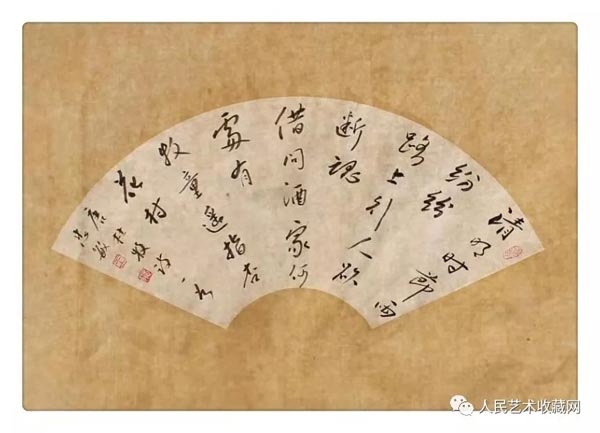 清明时節雨
纷纷
路上行人欲
断魂
借问酒家何
處有
牧童遥指杏
花村
唐杜牧诗一首
人民艺术收藏网